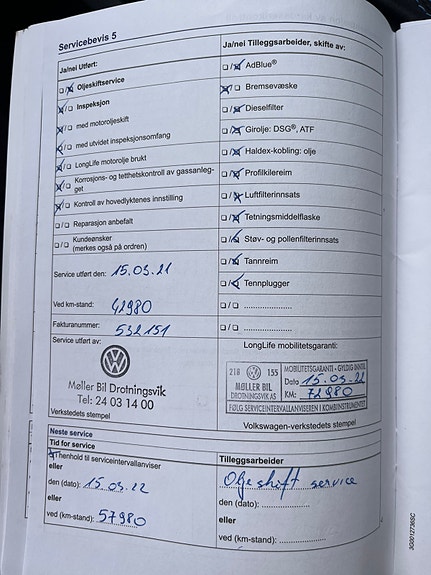 Servicebevis 5
Ja/nei Utført:
Ja/nei Tilleggsarbeider, skifte av:
Oljeskiftservice
AdBlue®
Inspeksjon
Bremsevæske
med motoroljeskift
Dieselfilter
med utvidet inspeksjonsomfang
Girolje: DSG®, ATF
LongLife motorolje brukt
Haldex-kobling: olje
Korrosjons- og tetthetskontroll av gassanleg-
get
Profilkilereim
Kontroll av hovedlyktenes innstilling
Luftfilterinnsats
Reparasjon anbefalt
Tetningsmiddelflaske
Kundeønsker
(merkes også på ordren)
Støv- og pollenfilterinnsats
Tannreim
Service utført den: 15.03.21
Tennplugger
Ved km-stand: 42980
Fakturanummer: 532151
Service utført av:
LongLife mobilitetsgaranti:
Møller Bil Drotningsvik
Tel: 24 03 14 00
218 155
MØLLER BIL
DROTNINGSVIK AS
MOBILITETSGARANTI - GYLDIG INNTIL
Dato 15.03.22
KM: 72980
FØLG SERVICEINTERVALLANVISEREN I KOMBIINSTRUMENTET
Verkstedets stempel
Volkswagen-verkstedets stempel
Neste service
Tid for service
Tilleggsarbeider
I henhold til serviceintervallanviser
eller
Oljeskift service
den (dato): 15.03.22
den (dato):
eller
eller
ved (km-stand): 57980
ved (km-stand):
3G0012738SC